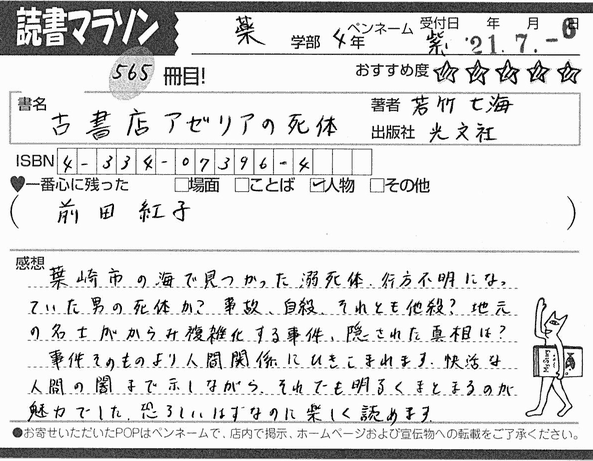 読書マラソン
薬 学部 4年 ペンネーム 紫 受付日 年 月 日
'21.7.-6
565 冊目!
おすすめ度 ☆☆☆☆☆
書名 古書店アゼリアの死体
著者 若竹七海
出版社 光文社
ISBN 4-334-07396-4
♥一番心に残った □場面 □ことば ☑人物 □その他
( 前田紅子 )
感想
葉崎市の海で見つかった溺死体、行方不明になっ
ていた男の死体か? 事故、自殺、それとも他殺? 地元
の名士がからみ複雑化する事件、隠された真相は?
事件そのものより人間関係にひきこまれます。快活な
人間の闇まで示しながら、それでも明るくまとまるのが
魅力でした。恐ろしいはずなのに楽しく読めます。
●お寄せいただいたPOPはペンネームで、店内で掲示、ホームページおよび宣伝物への転載をご了承ください。